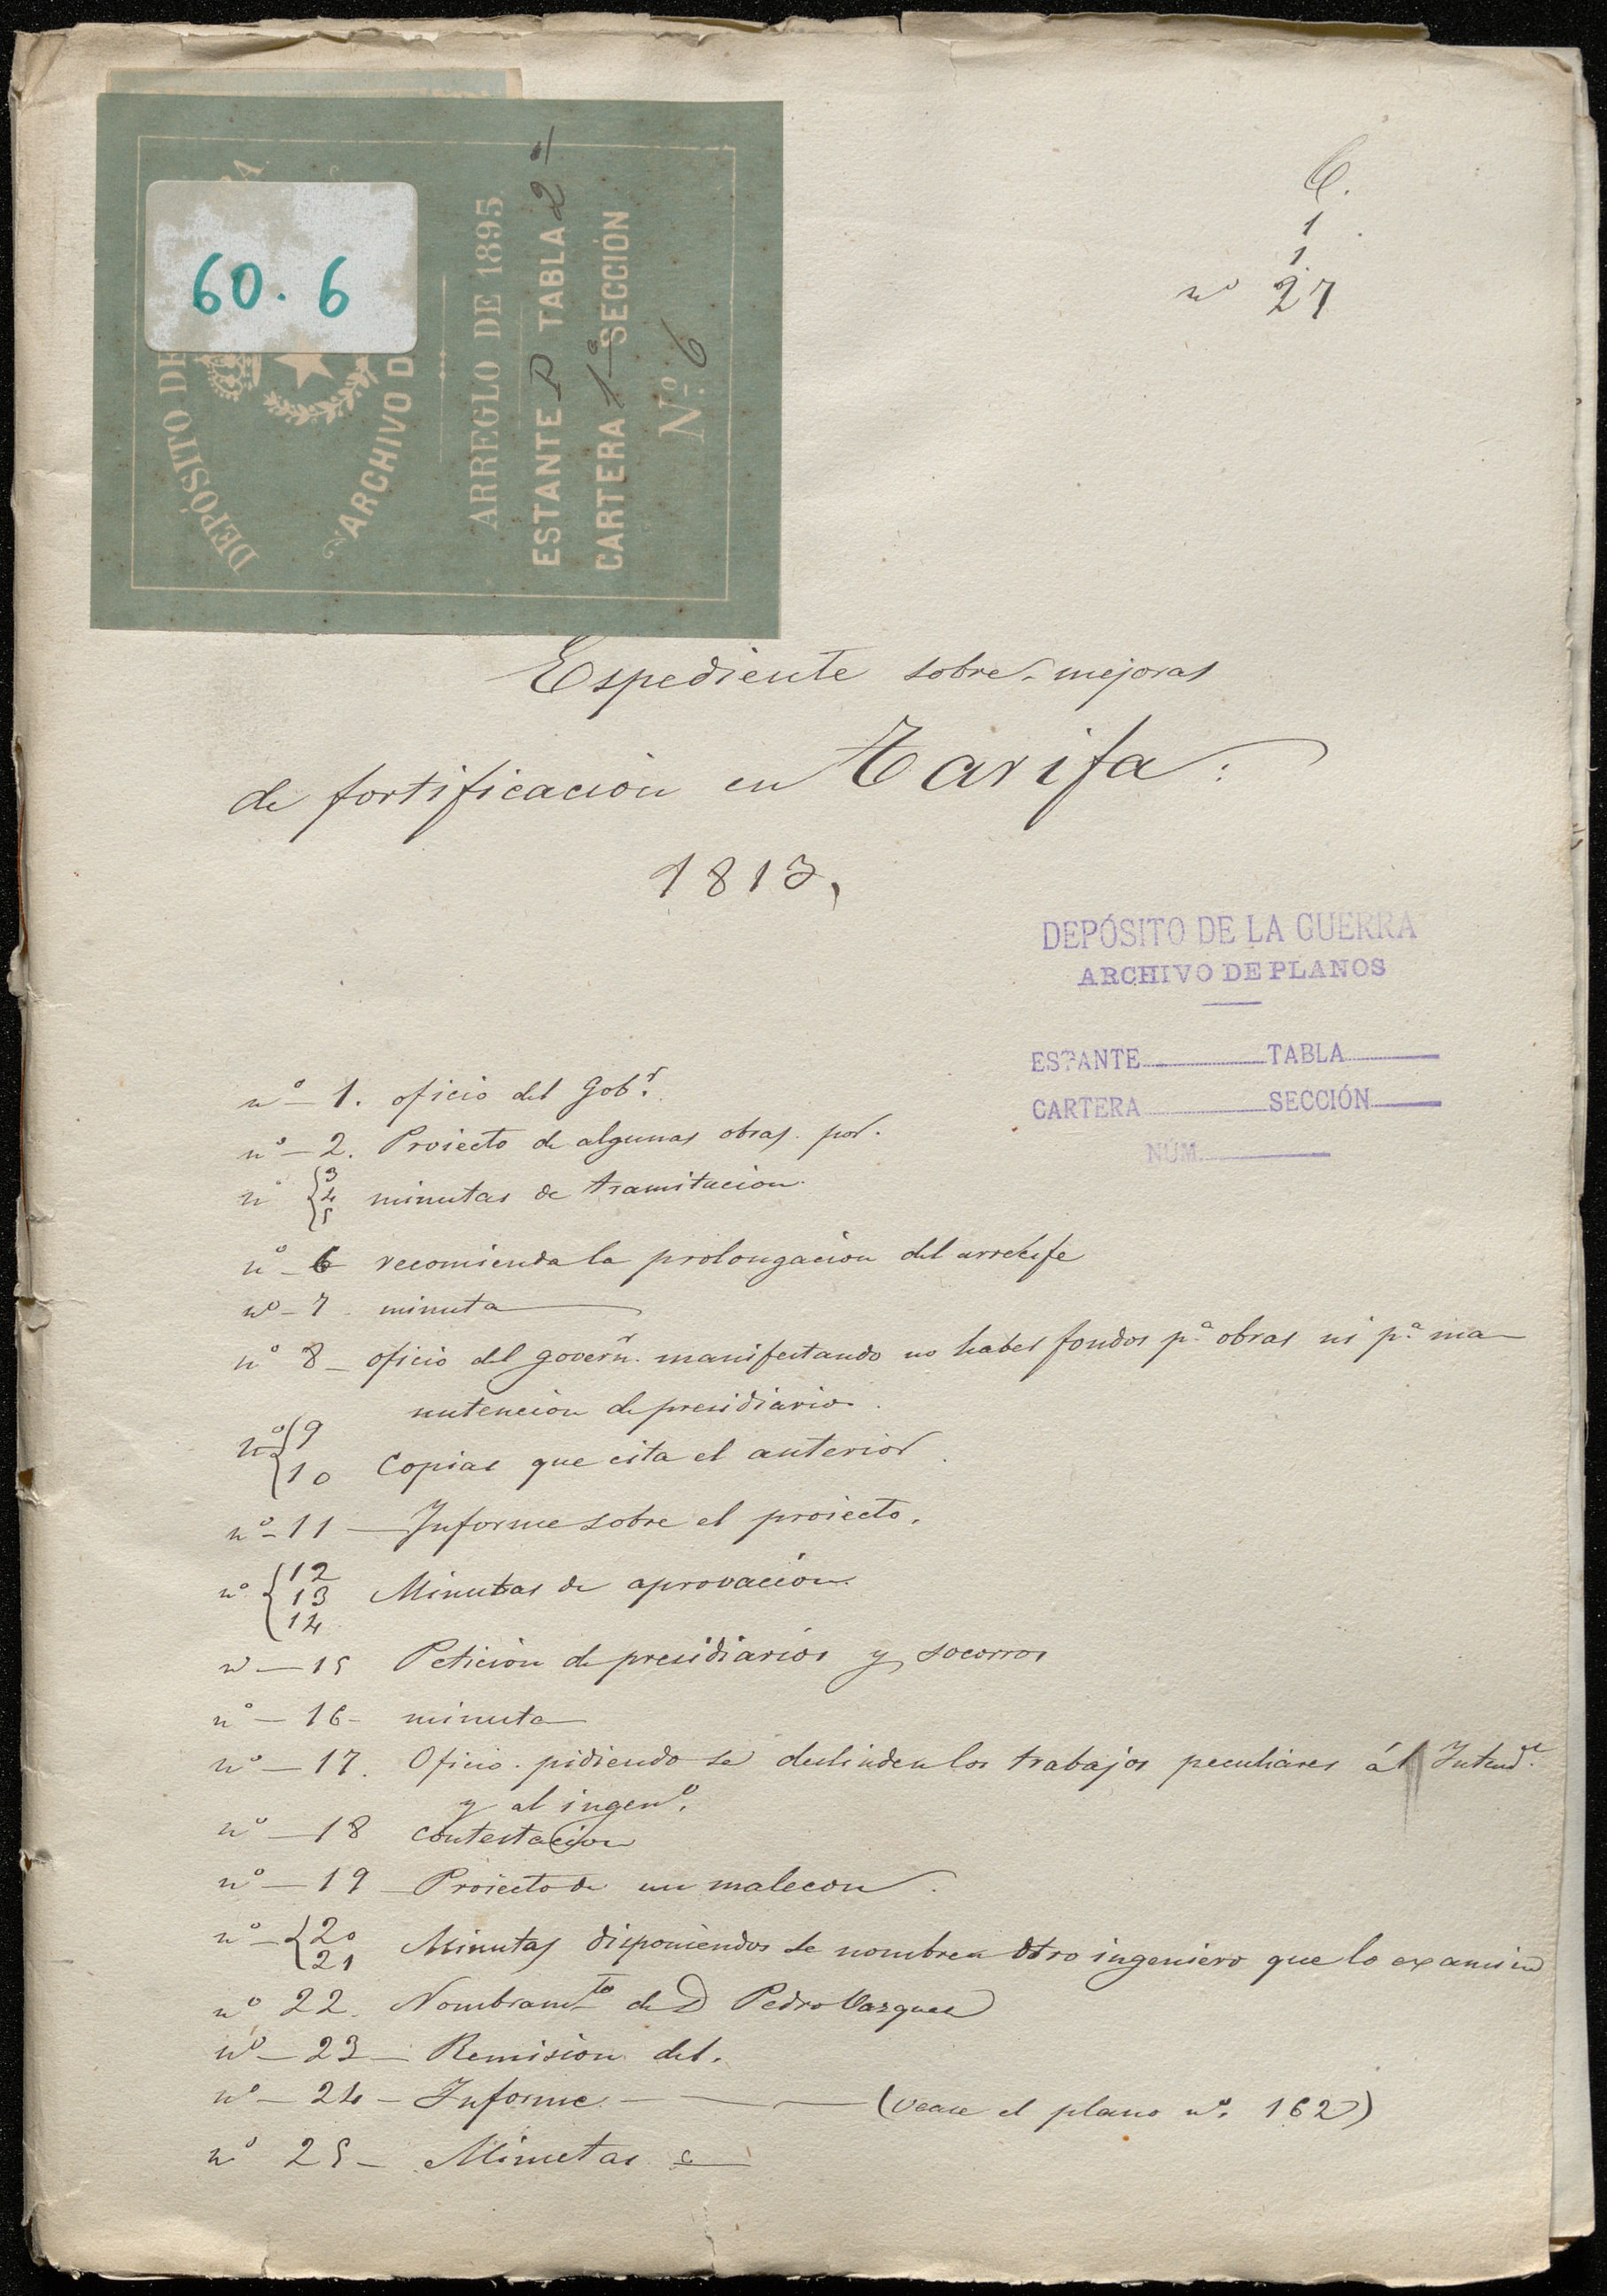 60.6
DEPÓSITO DE
ARCHIVO D
ARREGLO DE 1895
ESTANTE P TABLA 2ª
CARTERA 1ª SECCIÓN
Nº 6
C.
1
1
nº 27
Espediente sobre mejoras
de fortificacion en Tarifa:
1813,
DEPÓSITO DE LA GUERRA
ARCHIVO DE PLANOS
ESTANTE TABLA
CARTERA SECCIÓN
NÚM.
nº 1. oficio del Gobr.
nº 2. Proiecto de algunas obras. por.
nº {3 4 5 minutas de tramitacion.
nº 6 recomienda la prolongacion del arrecife
nº 7 minuta
nº 8 oficio del governr. manifestando no haber fondos pa. obras ni pa. ma
nutencion de presidiarios.
nº {9 10 Copias que cita el anterior.
nº 11 Informe sobre el proiecto.
nº {12 13 14 Minutas de aprovacion.
nº 15 Peticion de presidiarios y socorros
nº 16 minuta
nº 17. Oficio pidiendo se deslinden los trabajos peculiares ál Intende.
y al ingeno.
nº 18 contestacion
nº 19 Proiecto de un malecon.
nº {20 21 Minutas disponiendo se nombre otro ingeniero que lo examine
nº 22. Nombramto de D Pedro Vazquez
nº 23 Remision del.
nº 24 Informe (vease el plano nº. 162)
nº 25 Minutas